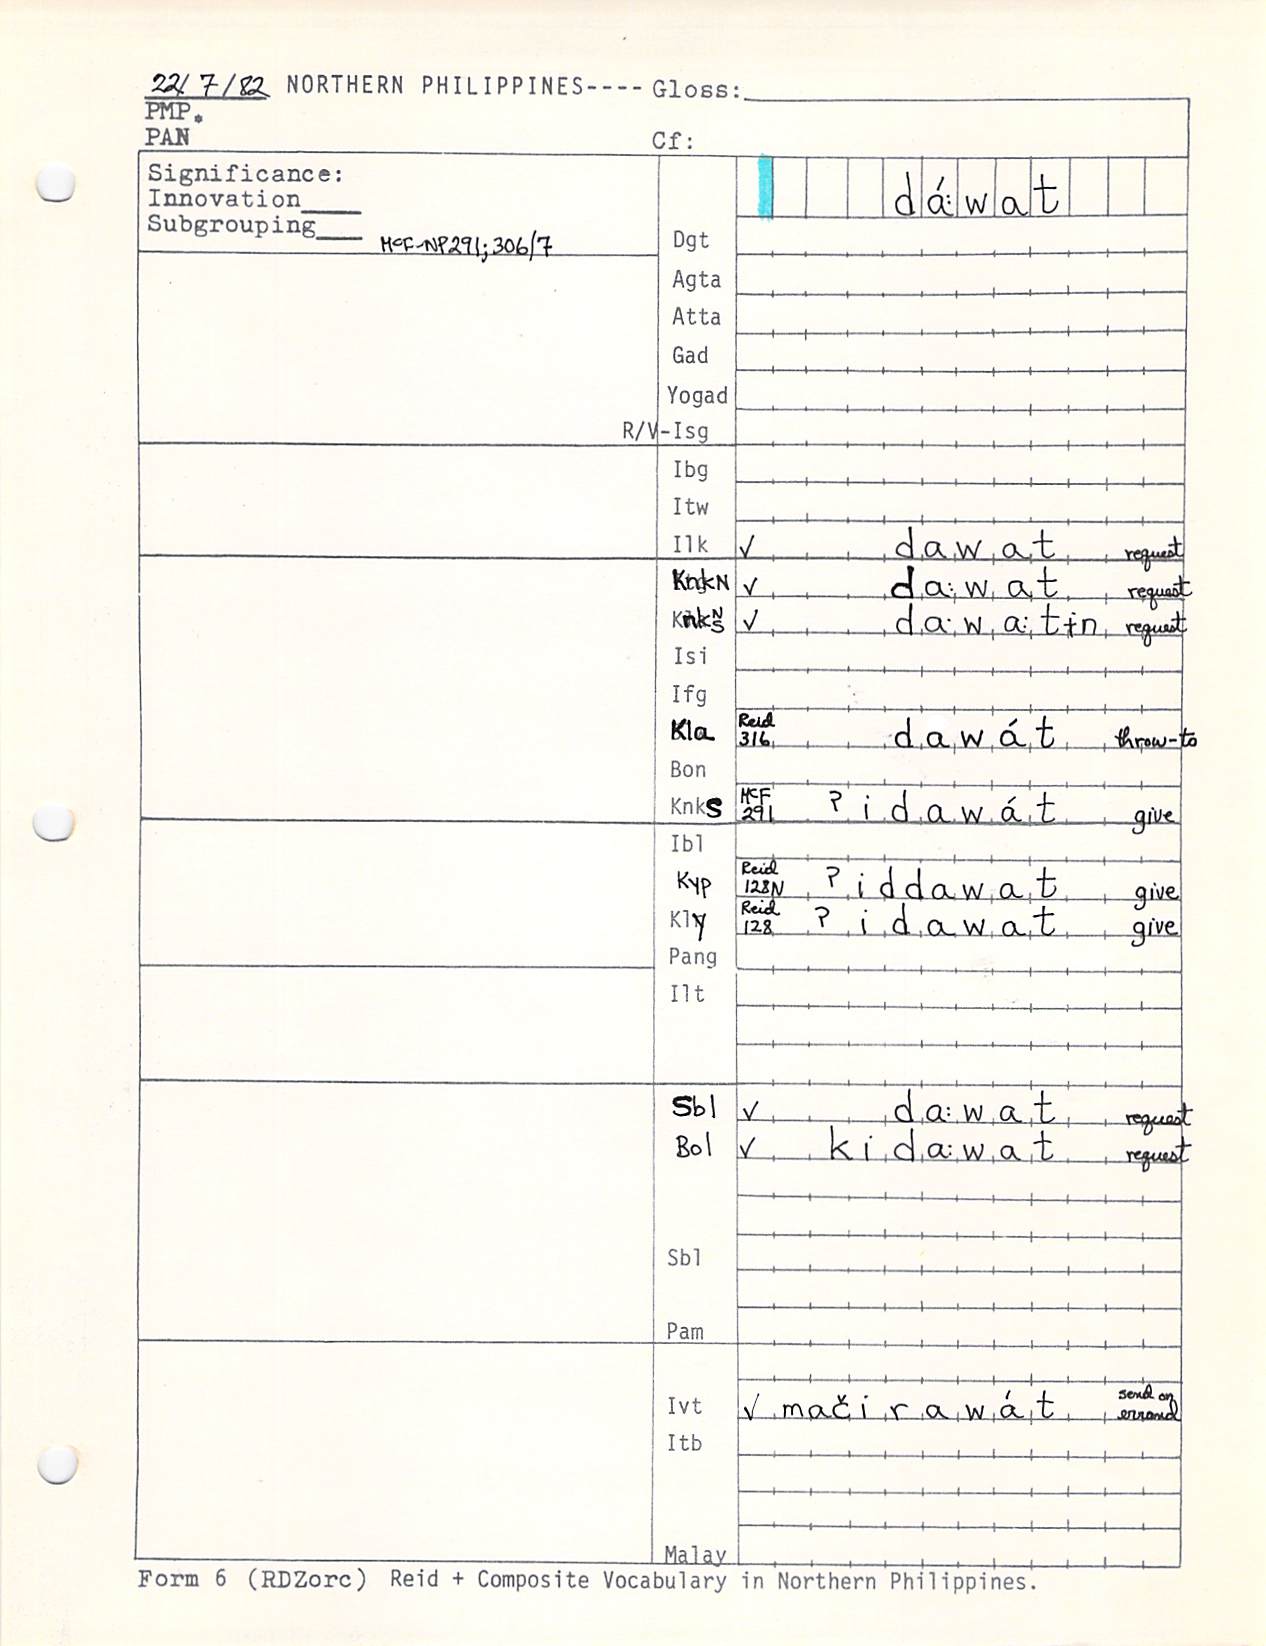 22/7/82 NORTHERN PHILIPPINES---- Gloss:
PMP.
PAN Cf:
Significance:
Innovation
Subgrouping
McF-NP291; 306/7
dá:wat
Dgt
Agta
Atta
Gad
Yogad
R/V-Isg
Ibg
Itw
Ilk ✓ dawat request
KnkN ✓ da:wat request
✓ da:wa:tɨn request
Isi
Ifg
Kla Reid 316 dawát throw-to
Bon
KnkS McF 291 ?idawát give
Ibl
Kyp Reid 128N ?iddawat give
Kly Reid 128 ?idawat give
Pang
Ilt
Sbl ✓ da:wat request
Bol ✓ kida:wat request
Sbl
Pam
Ivt ✓ mačirawát send on errand
Itb
Malay
Form 6 (RDZorc) Reid + Composite Vocabulary in Northern Philippines.